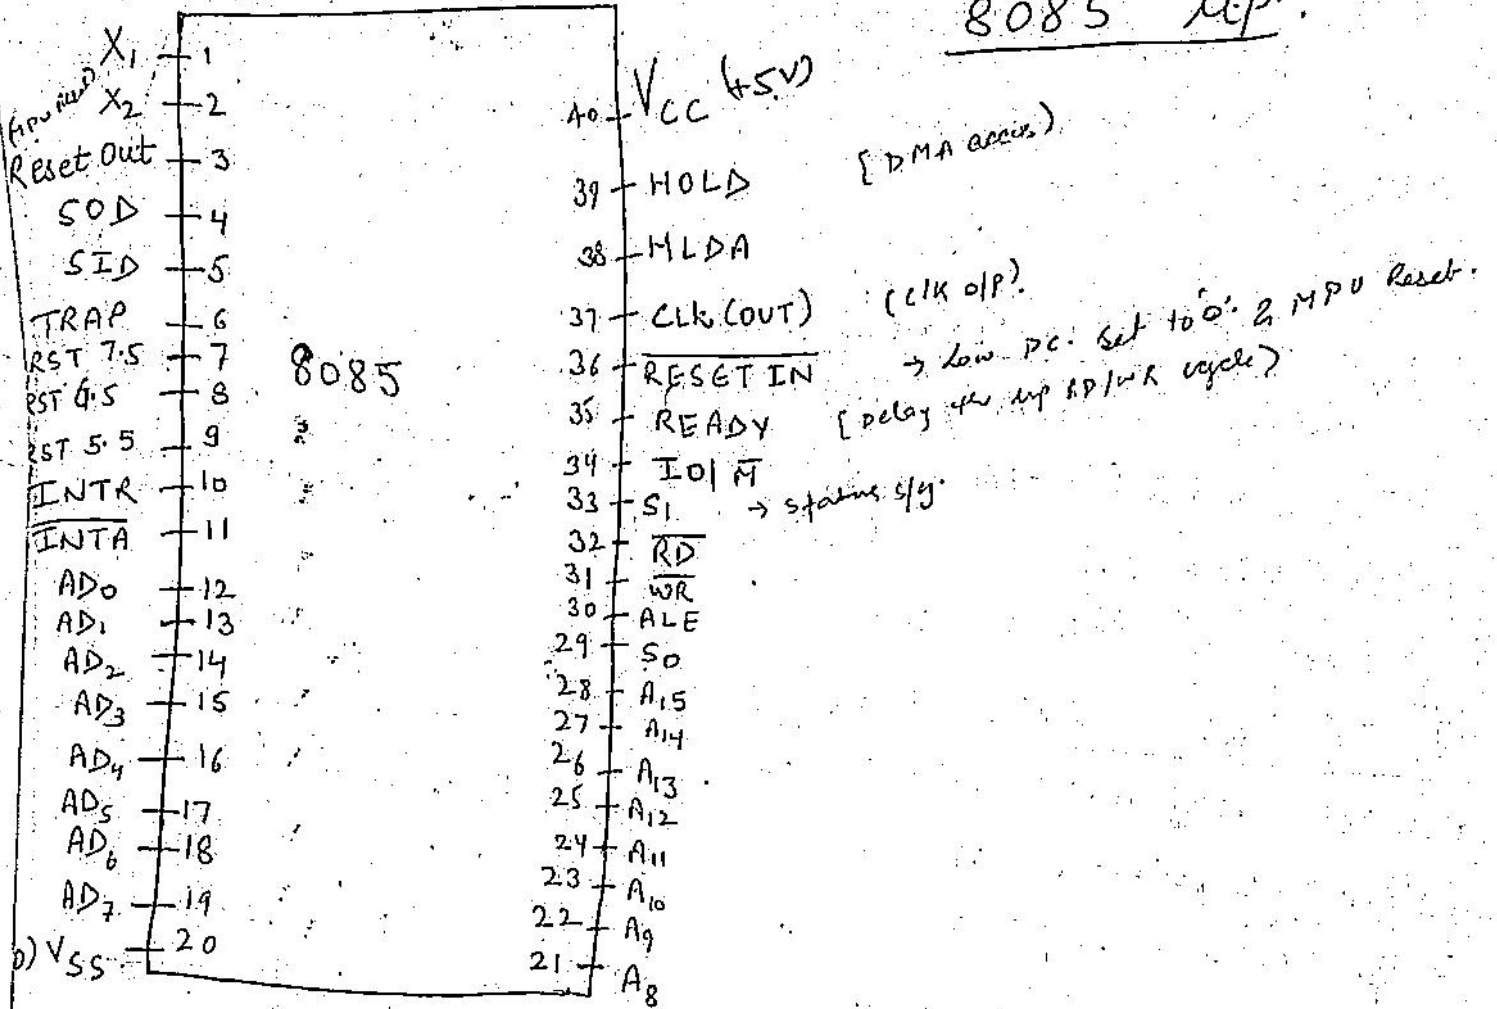 8085 μp.
X1 1
(MPU reset)
X2 2
Reset Out 3
SOD 4
SID 5
TRAP 6
RST 7.5 7
RST 6.5 8
RST 5.5 9
INTR 10
I̅N̅T̅A̅ 11
AD0 12
AD1 13
AD2 14
AD3 15
AD4 16
AD5 17
AD6 18
AD7 19
VSS 20
8085
40 VCC (+5V)
39 HOLD [DMA access)
38 HLDA
37 CLK (OUT) (CLK O/P).
36 R̅E̅S̅E̅T̅ I̅N̅ → Low PC. set to '0' & MPU Reset.
35 READY [Delay the μp RD/WR cycle)
34 IO/M̅
33 S1 → status sig.
32 R̅D̅
31 W̅R̅
30 ALE
29 S0
28 A15
27 A14
26 A13
25 A12
24 A11
23 A10
22 A9
21 A8